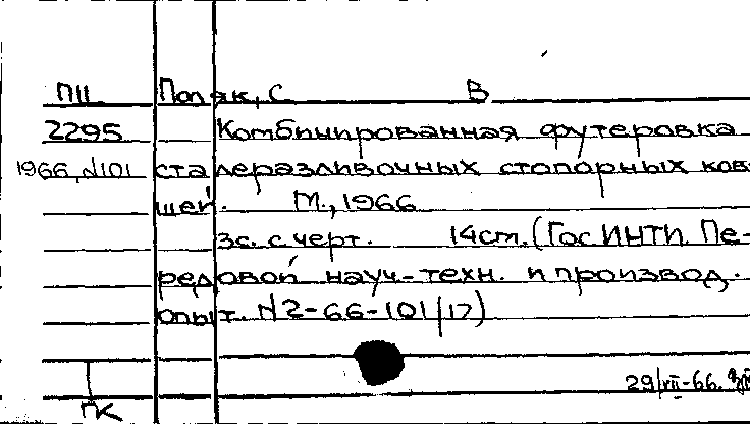 П11 Поляк, С В
2295 Комбинированная футеровка
1966, N101 сталеразливочных стопорных ков-
шей. М., 1966
3с. с черт. 14см. (ГосИНТИ. Пе-
редовой науч.-техн. и производ.
опыт. N2-66-101/17)
29/VII-66.
ПК